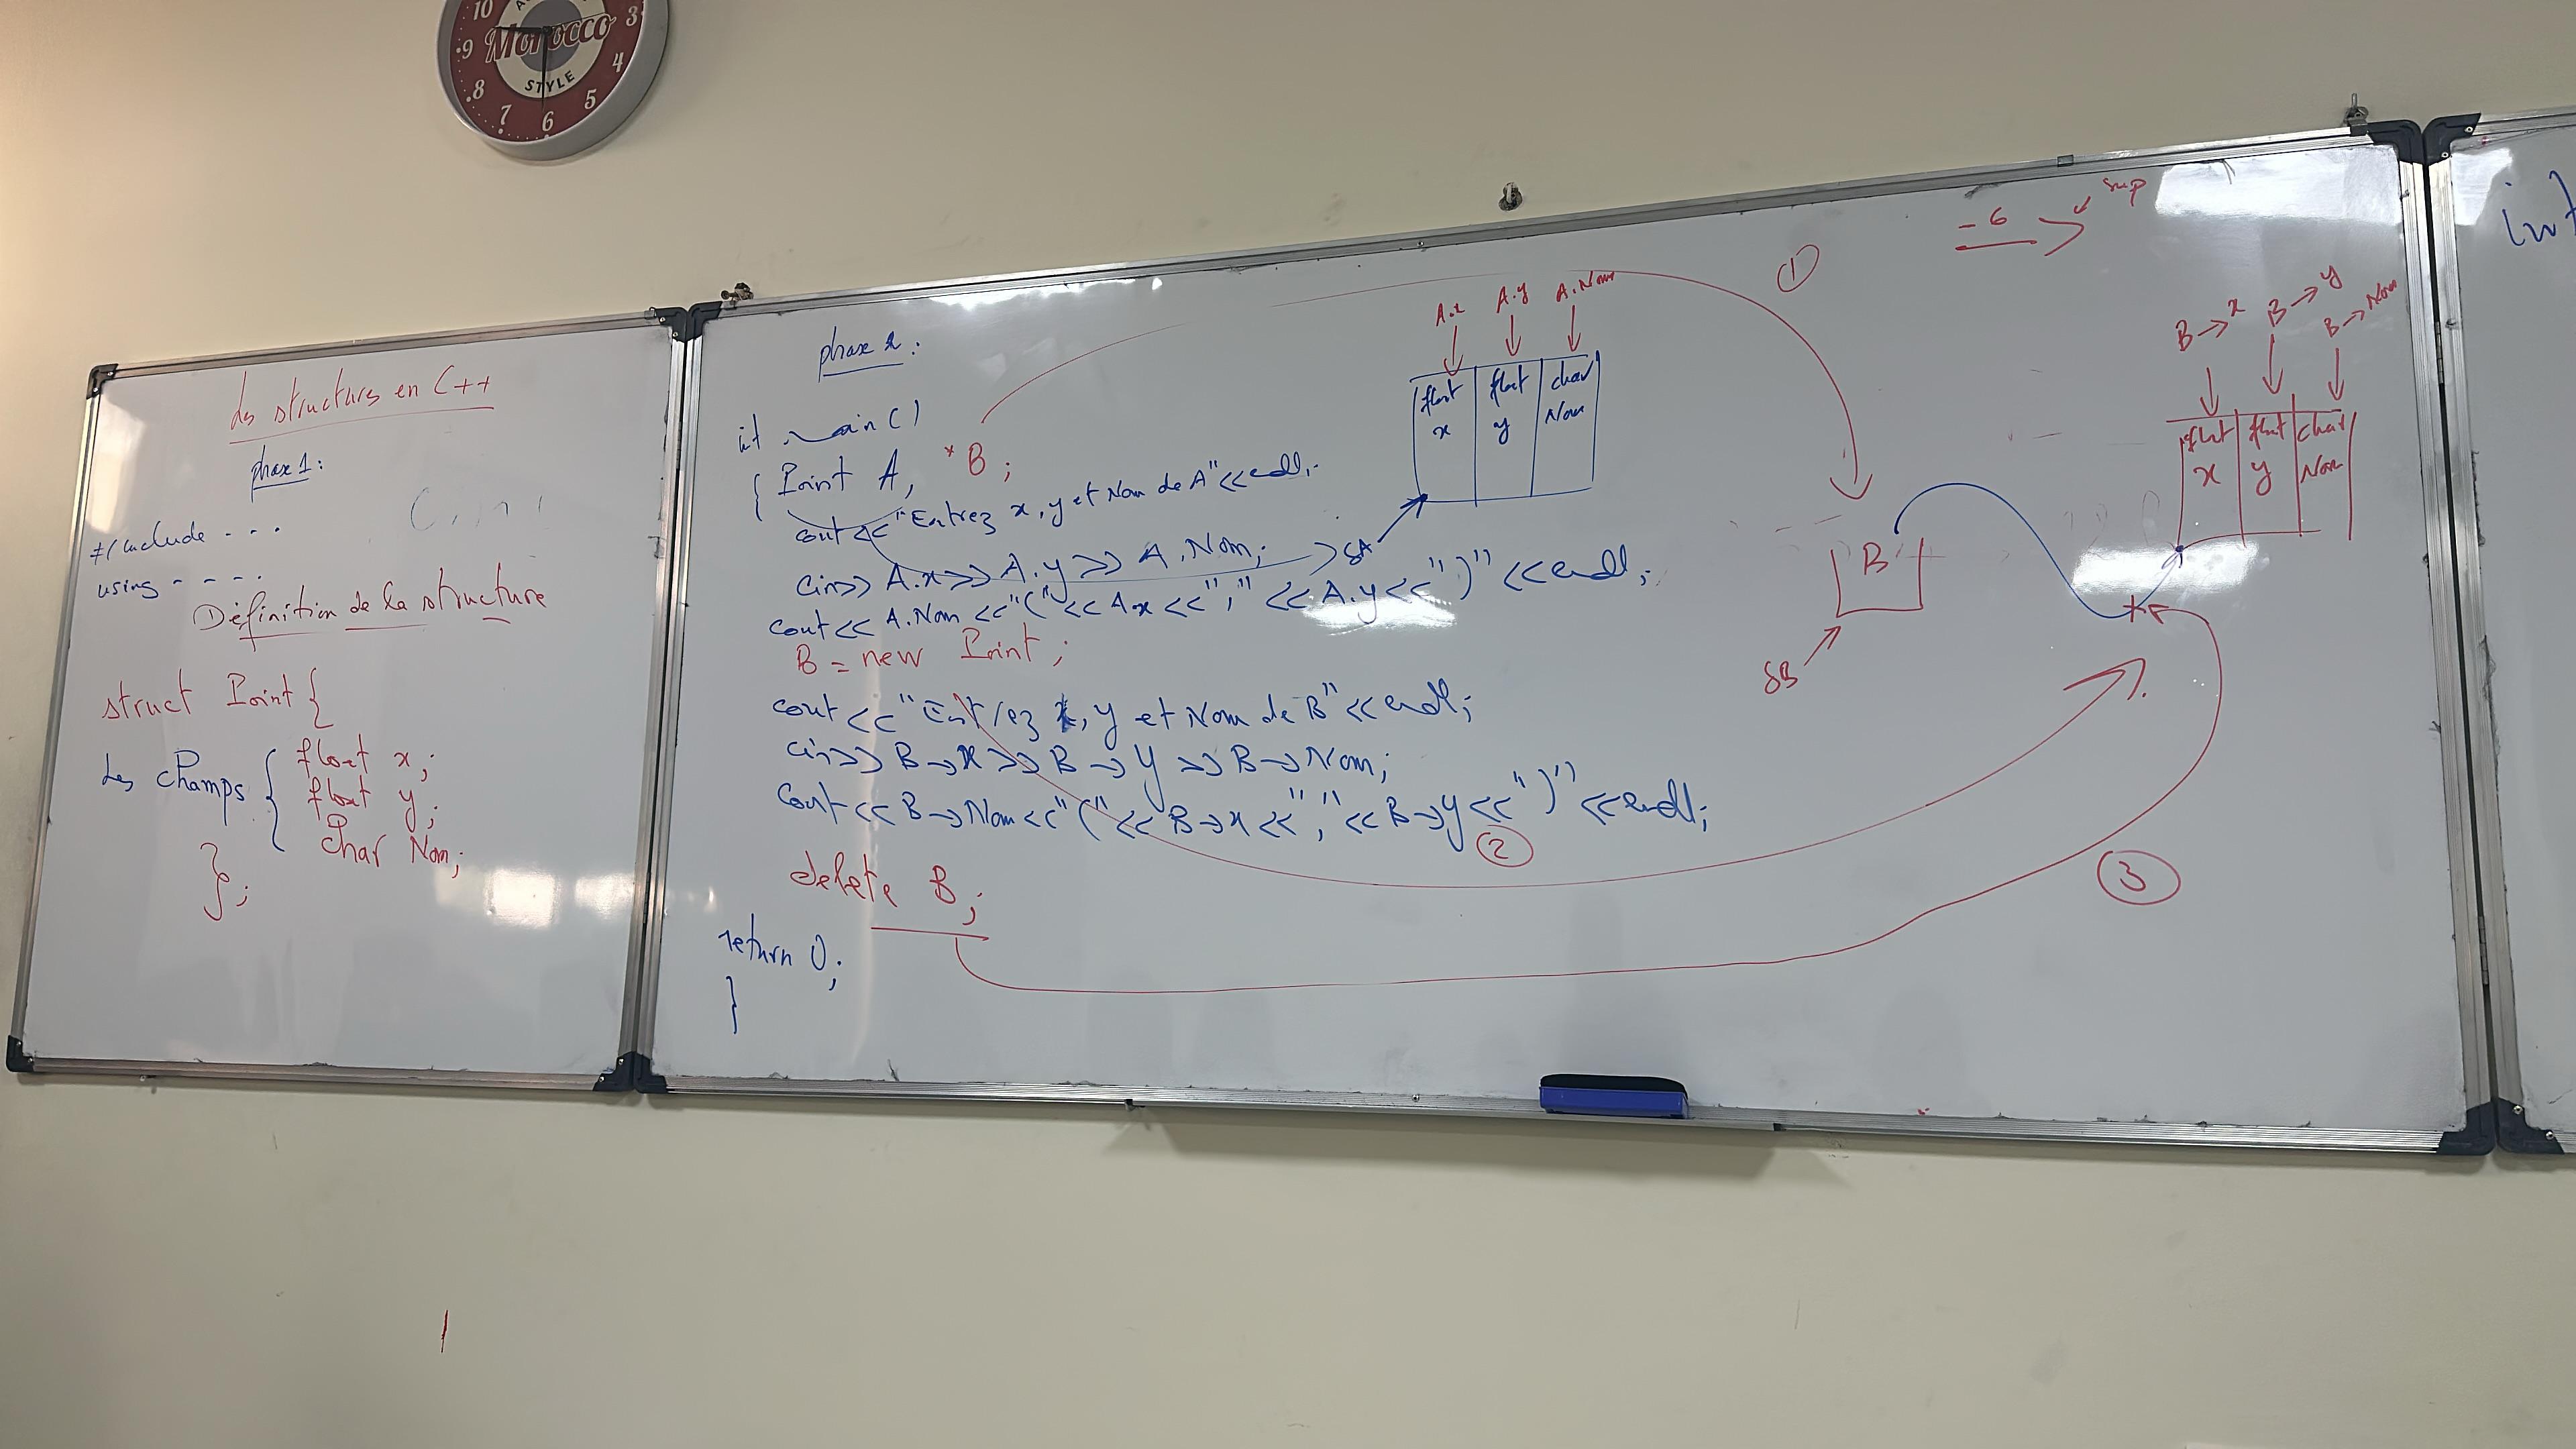 10
3
9
Morocco
4
8
STYLE
7
6
5
Les structures en C++
phase 1:
#include - - -
using - - - -
Définition de la structure
struct Point {
Les champs { float x;
float y;
char Nom;
};
phase 2:
int main()
{ Point A, *B;
cout << "Entrez x, y et Nom de A" << endl;
cin >> A.x >> A.y >> A.Nom;
cout << A.Nom << "(" << A.x << "," << A.y << ")" << endl;
B = new Point;
cout << "Entrez x, y et Nom de B" << endl;
cin >> B->x >> B->y >> B->Nom;
cout << B->Nom << "(" << B->x << "," << B->y << ")" << endl;
delete B;
return 0;
}
A.x A.y A.Nom
float x
float y
char Nom
&A
①
②
③
B
&B
- 6 > sup
B->x B->y B->Nom
float x
float y
char Nom
int